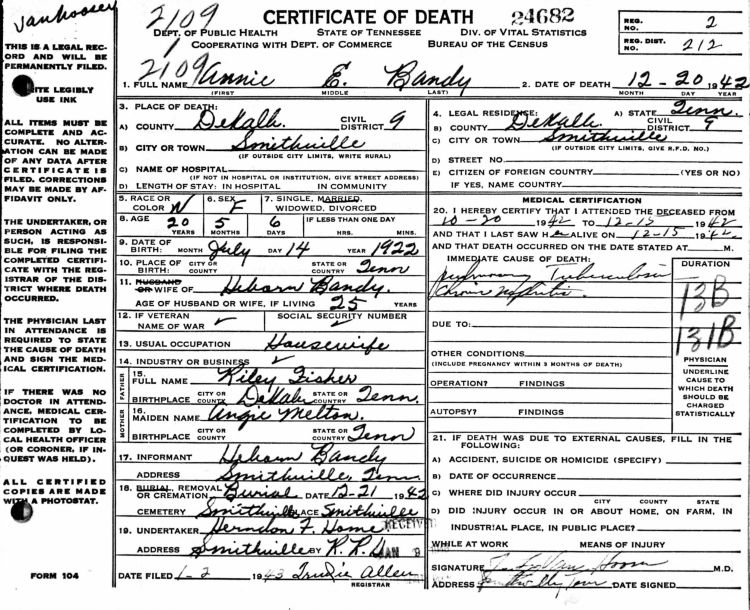 Vanhoosey
2109
CERTIFICATE OF DEATH
24682
REG. NO. 2
REG. DIST. NO. 212
DEPT. OF PUBLIC HEALTH STATE OF TENNESSEE DIV. OF VITAL STATISTICS
COOPERATING WITH DEPT. OF COMMERCE BUREAU OF THE CENSUS
THIS IS A LEGAL RECORD AND WILL BE PERMANENTLY FILED.
WRITE LEGIBLY
USE INK
ALL ITEMS MUST BE
COMPLETE AND AC-
CURATE. NO ALTER-
ATION CAN BE MADE
OF ANY DATA AFTER
CERTIFICATE IS
FILED. CORRECTIONS
MAY BE MADE BY AF-
FIDAVIT ONLY.
THE UNDERTAKER, OR
PERSON ACTING AS
SUCH, IS RESPONSI-
BLE FOR FILING THE
COMPLETED CERTIFI-
CATE WITH THE REG-
ISTRAR OF THE DIS-
TRICT WHERE DEATH
OCCURRED.
THE PHYSICIAN LAST
IN ATTENDANCE IS
REQUIRED TO STATE
THE CAUSE OF DEATH
AND SIGN THE MED-
ICAL CERTIFICATION.
IF THERE WAS NO
DOCTOR IN ATTEND-
ANCE, MEDICAL CER-
TIFICATION TO BE
COMPLETED BY LO-
CAL HEALTH OFFICER
(OR CORONER, IF IN-
QUEST WAS HELD).
ALL CERTIFIED
COPIES ARE MADE
WITH A PHOTOSTAT.
FORM 104
2109
1. FULL NAME Annie E. Bandy
(FIRST) MIDDLE LAST)
2. DATE OF DEATH 12-20 1942
MONTH DAY YEAR
3. PLACE OF DEATH:
A) COUNTY DeKalb CIVIL DISTRICT 9
B) CITY OR TOWN Smithville
(IF OUTSIDE CITY LIMITS, WRITE RURAL)
C) NAME OF HOSPITAL
(IF NOT IN HOSPITAL OR INSTITUTION, GIVE STREET ADDRESS)
D) LENGTH OF STAY: IN HOSPITAL IN COMMUNITY
5. RACE OR COLOR W
6. SEX F
7. SINGLE, MARRIED, WIDOWED, DIVORCED
8. AGE 20 5 6 IF LESS THAN ONE DAY
YEARS MONTHS DAYS HRS. MINS.
9. DATE OF BIRTH: MONTH July DAY 14 YEAR 1922
10. PLACE OF BIRTH: CITY OR COUNTY STATE OR COUNTRY Tenn
11. HUSBAND OR WIFE OF Heborn Bandy.
AGE OF HUSBAND OR WIFE, IF LIVING 25 YEARS
12. IF VETERAN NAME OF WAR ✓ SOCIAL SECURITY NUMBER ✓
13. USUAL OCCUPATION Housewife
14. INDUSTRY OR BUSINESS ✓
FATHER
15. FULL NAME Riley Fisher
BIRTHPLACE CITY OR COUNTY DeKalb STATE OR COUNTRY Tenn.
MOTHER
16. MAIDEN NAME Angie Melton
BIRTHPLACE CITY OR COUNTY STATE OR COUNTRY Tenn
17. INFORMANT Heborn Bandy
ADDRESS Smithville, Tenn.
18. BURIAL, REMOVAL OR CREMATION Burial DATE 12-21 1942
CEMETERY Smithville PLACE Smithville
19. UNDERTAKER Herndon F. Home
RECEIVED
ADDRESS Smithville BY R. R. D
JAN
DATE FILED 1-2 1943 Trudie Allen
REGISTRAR
4. LEGAL RESIDENCE: A) STATE Tenn.
B) COUNTY DeKalb CIVIL DISTRICT 9
C) CITY OR TOWN Smithville
(IF OUTSIDE CITY LIMITS, GIVE R.F.D. NO.)
D) STREET NO.
E) CITIZEN OF FOREIGN COUNTRY (YES OR NO)
IF YES, NAME COUNTRY
MEDICAL CERTIFICATION
20. I HEREBY CERTIFY THAT I ATTENDED THE DECEASED FROM
10-20 1942 TO 12-15 1942
AND THAT I LAST SAW H ALIVE ON 12-15 1942
AND THAT DEATH OCCURRED ON THE DATE STATED AT M.
IMMEDIATE CAUSE OF DEATH: DURATION
Pulmonary Tuberculosis
Nephritis
13B
DUE TO:
131B
OTHER CONDITIONS
(INCLUDE PREGNANCY WITHIN 3 MONTHS OF DEATH)
OPERATION? FINDINGS
AUTOPSY? FINDINGS
PHYSICIAN
UNDERLINE
CAUSE TO
WHICH DEATH
SHOULD BE
CHARGED
STATISTICALLY
21. IF DEATH WAS DUE TO EXTERNAL CAUSES, FILL IN THE FOLLOWING:
A) ACCIDENT, SUICIDE OR HOMICIDE (SPECIFY)
B) DATE OF OCCURRENCE
C) WHERE DID INJURY OCCUR
CITY COUNTY STATE
D) DID INJURY OCCUR IN OR ABOUT HOME, ON FARM, IN
INDUSTRIAL PLACE, IN PUBLIC PLACE?
WHILE AT WORK MEANS OF INJURY
SIGNATURE M.D.
ADDRESS DATE SIGNED